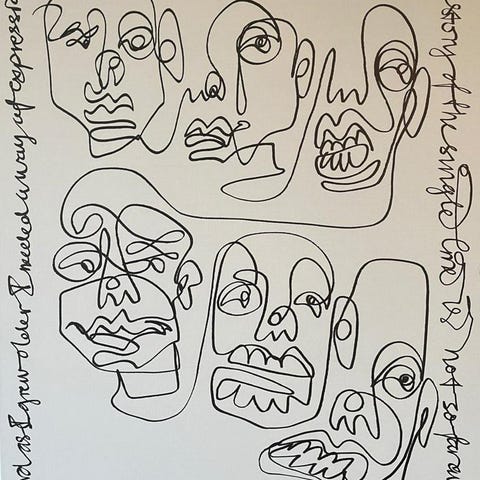 nd as I grew older I needed a way of express
story of the single line is not so